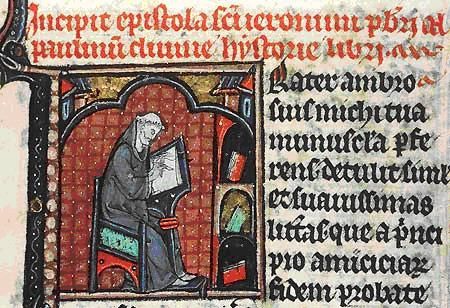 Incipit epistola sci ieronimi pbri ad
paulinu diuine hystorie libri
Rater ambro
sius michi tua
munuscla pfe
rens detulit siml
et suauissimas
littas que a pnci
pio amiciciar
fidem probate